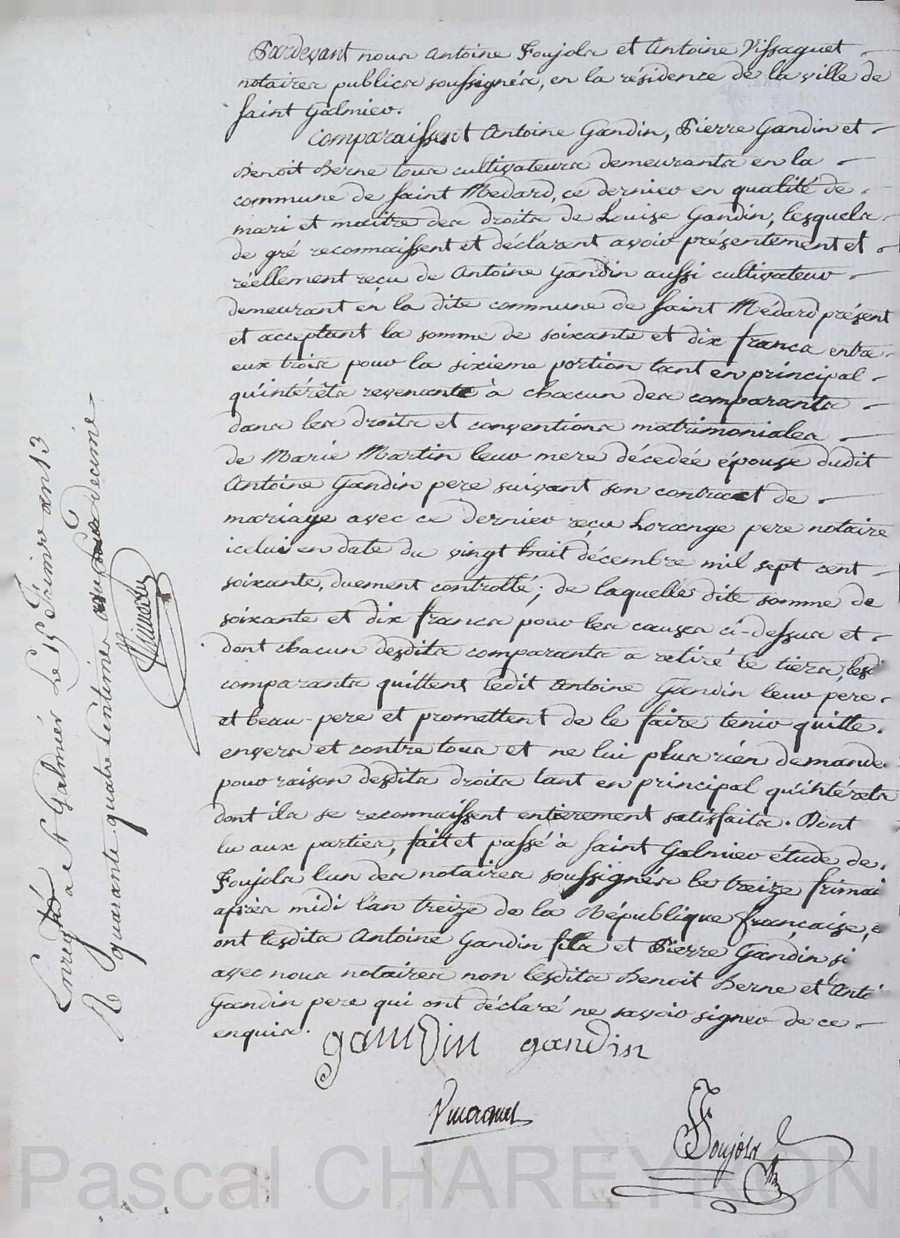 Pardevant nous Antoine Poujols et Antoine Vissaguet
notaires publics soussignés, en la résidence de la ville de
saint Galmier.
Comparaissent Antoine Gandin, Pierre Gandin et
Benoit Berne tous cultivateurs demeurants en la
commune de saint Medard, ce dernier en qualité de
mari et maître des droits de Louise Gandin, lesquels
de gré reconnaissent et déclarent avoir présentement et
réellement reçu de Antoine Gandin aussi cultivateur
demeurant en la dite commune de saint Médard présent
et acceptant la somme de soixante et dix francs entre
eux trois pour la sixieme portion tant en principal
qu'intérêts revenante à chacun des comparants
dans les droits et conventions matrimoniales
de Marie Martin leur mere décédée épouse dudit
Antoine Gandin pere suivant son contract de
mariage avec ce dernier reçu Lorange pere notaire
icelui en date du vingt huit décembre mil sept cent
soixante, duement controllé; de laquelle dite somme de
soixante et dix francs pour les causes ci-dessus et
dont chacun desdits comparants a retiré le tiers, lesd
comparants quittent ledit Antoine Gandin leur pere
et beau-pere et promettent de le faire tenir quitte
envers et contre tous et ne lui plus rien demande
pour raison desdits droits tant en principal qu'intérêts
dont ils se reconnaissent entierement satisfaits. Dont
lu aux parties, fait et passé à saint Galmier étude de
Poujols l'un des notaires soussignés le treize frimai
après midi l'an treize de la République française, e
ont lesdits Antoine Gandin fils et Pierre Gandin si
avec nous notaires non lesdits Benoit Berne et Anto
Gandin pere qui ont déclaré ne savoir signer de ce
enquis.
gandin gandin
Poujols
Enregtré a St Galmier Le 15 frimire an 13
R quarante quatre Centimes decime
Pascal CHAREYRON